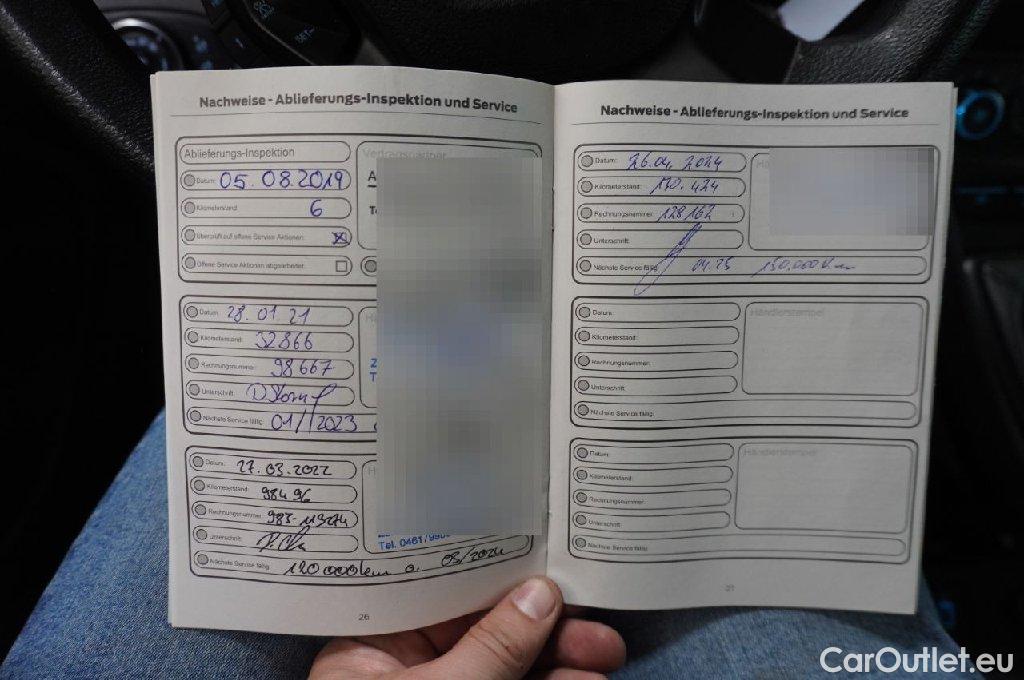 Nachweise - Ablieferungs-Inspektion und Service
Ablieferungs-Inspektion
Vertragspartner
Datum: 05.08.2019
Kilometerstand: 6
Überprüft auf offene Service Aktionen:
Offene Service Aktionen abgearbeitet:
Datum: 28.01 21
Kilometerstand: 32866
Rechnungsnummer: 98667
Unterschrift:
Nächste Service fällig: 01/2023
Datum: 27.03.2022
Kilometerstand: 98496
Rechnungsnummer: 983-113274
Unterschrift:
Tel. 0461/
Nächste Service fällig: 120 000km o. 03/2024
26
Nachweise - Ablieferungs-Inspektion und Service
Datum: 26.04. 2024
Kilometerstand: 120.424
Rechnungsnummer: 128162
Unterschrift:
Nächste Service fällig: 04.25 150,000km
Datum:
Händlerstempel
Kilometerstand:
Rechnungsnummer:
Unterschrift:
Nächste Service fällig:
Datum:
Händlerstempel
Kilometerstand:
Rechnungsnummer:
Unterschrift:
Nächste Service fällig:
CarOutlet.eu